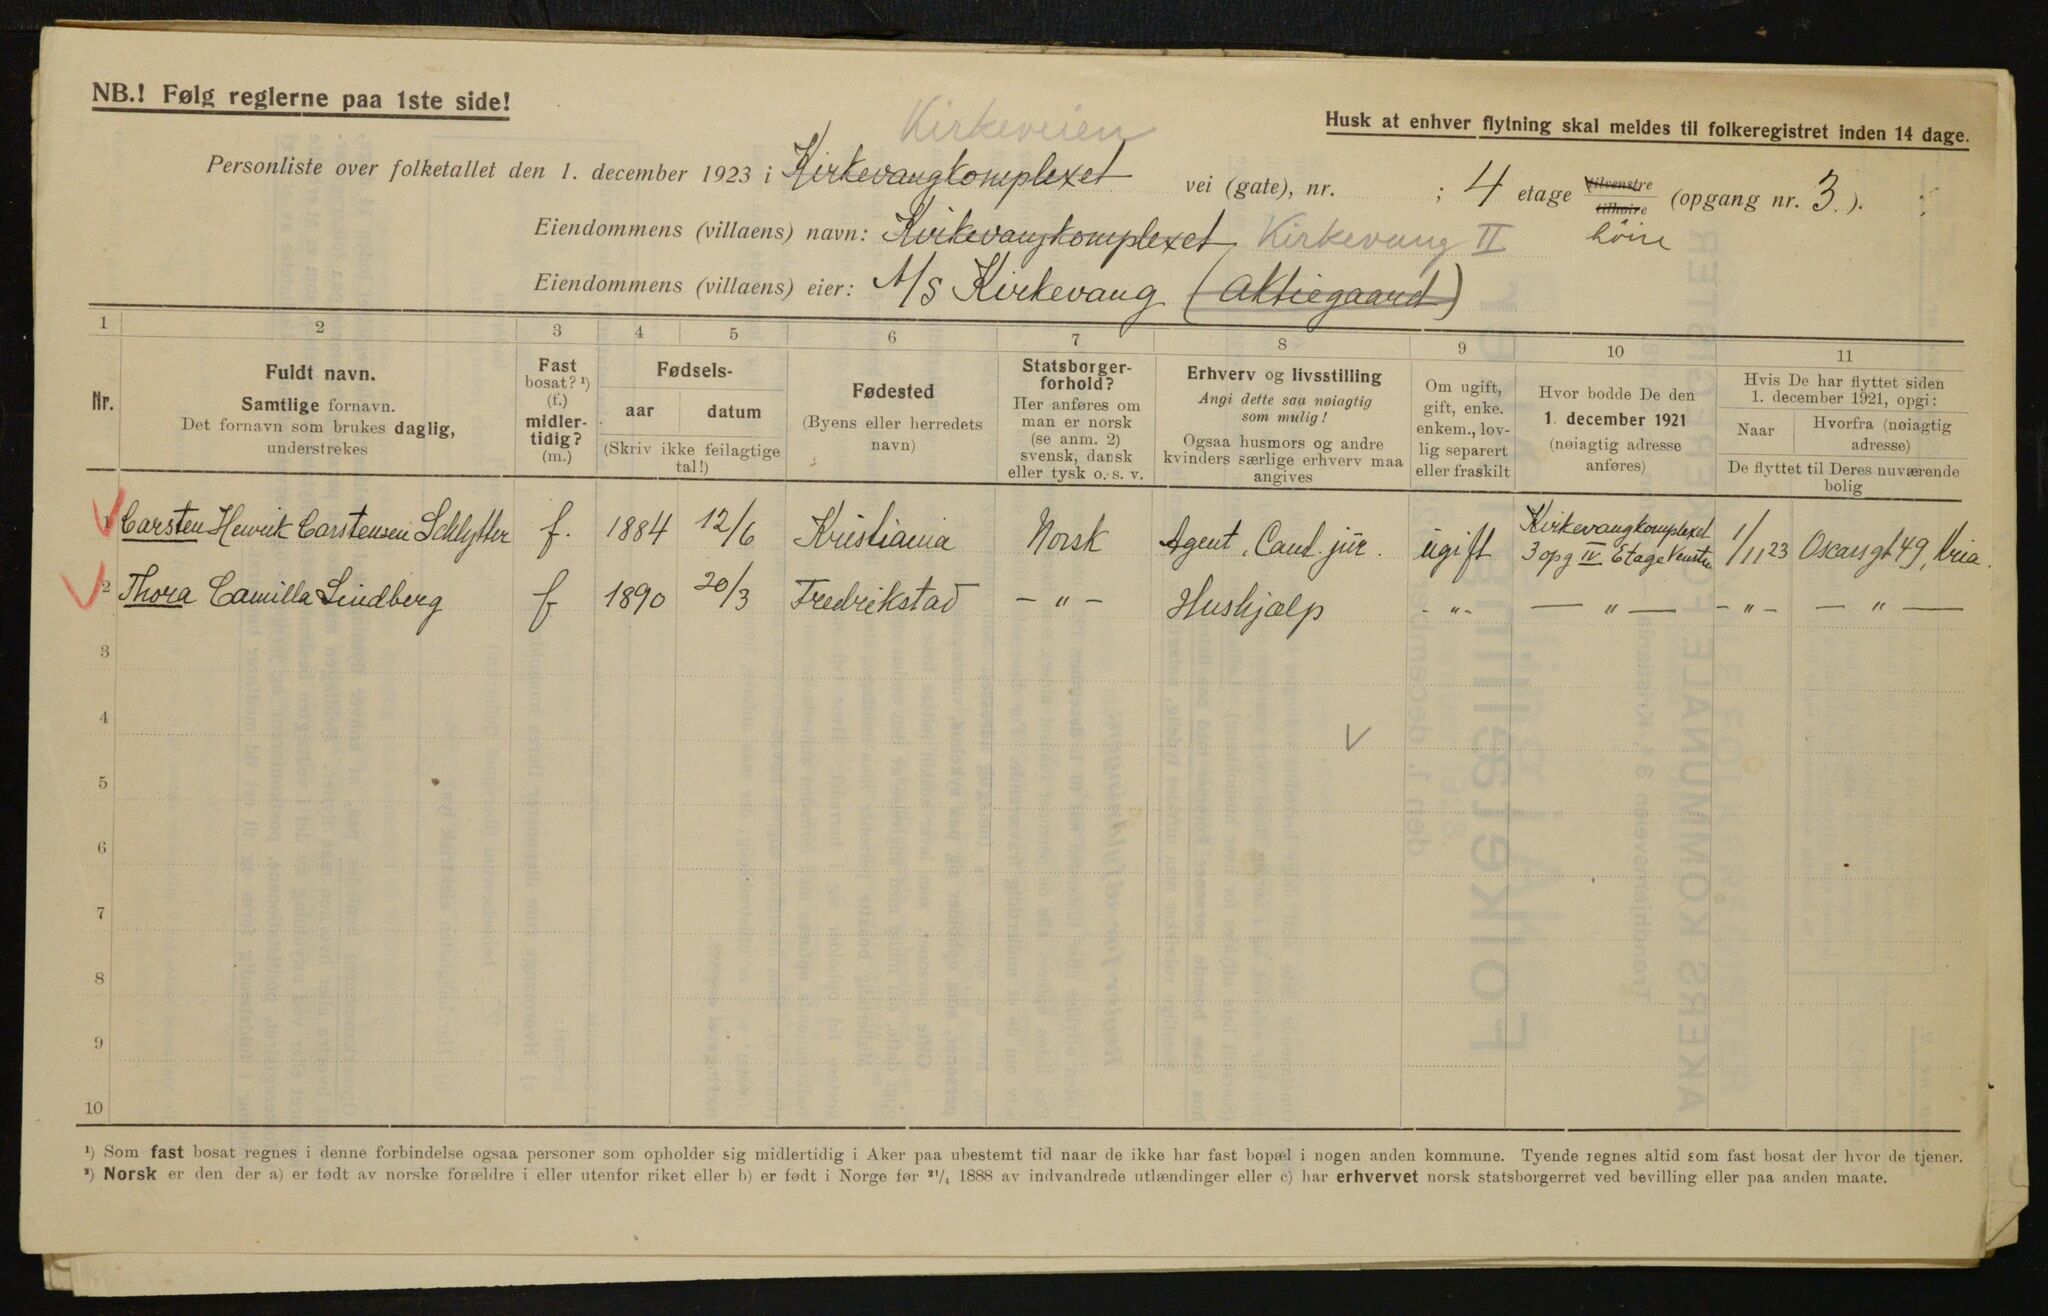 NB.! Følg reglerne paa 1ste side!
Husk at enhver flytning skal meldes til folkeregistret inden 14 dage.
Kirkeveien
Personliste over folketallet den 1. december 1923 i Kirkevangkomplexet vei (gate), nr. ; 4 etage tilvenstre tilhøire (opgang nr. 3.).
høire
Eiendommens (villaens) navn: Kirkevangkomplexet Kirkevang II
Eiendommens (villaens) eier: A/S Kirkevang (Aktiegaard)
1 2 3 4 5 6 7 8 9 10 11
Nr.
Fuldt navn.
Samtlige fornavn.
Det fornavn som brukes daglig,
understrekes
Fast
bosat? ¹)
(f.)
midler-
tidig?
(m.)
Fødsels-
aar datum
(Skriv ikke feilagtige
tal!)
Fødested
(Byens eller herredets
navn)
Statsborger-
forhold?
Her anføres om
man er norsk
(se anm. 2)
svensk, dansk
eller tysk o. s. v.
Erhverv og livsstilling
Angi dette saa nøiagtig
som mulig!
Ogsaa husmors og andre
kvinders særlige erhverv maa
angives
Om ugift,
gift, enke.
enkem., lov-
lig separert
eller fraskilt
Hvor bodde De den
1. december 1921
(nøiagtig adresse
anføres)
Hvis De har flyttet siden
1. december 1921, opgi:
Naar
Hvorfra (nøiagtig
adresse)
De flyttet til Deres nuværende
bolig
1 Carsten Henrik Carstensen Schlytter f. 1884 12/6 Kristiania Norsk Agent, Cand. jur. ugift Kirkevangkomplexet 3 opg IV Etage Venstre 1/11 23 Oscarsgt 49, Kria.
2 Thora Camilla Lindberg f 1890 20/3 Fredrikstad — " — Hushjælp - " - — " — — " — — " —
3
4
5
6
7
8
9
10
¹) Som fast bosat regnes i denne forbindelse ogsaa personer som opholder sig midlertidig i Aker paa ubestemt tid naar de ikke har fast bopæl i nogen anden kommune. Tyende regnes altid som fast bosat der hvor de tjener.
²) Norsk er den der a) er født av norske forældre i eller utenfor riket eller b) er født i Norge før 21/4 1888 av indvandrede utlændinger eller c) har erhvervet norsk statsborgerret ved bevilling eller paa anden maate.